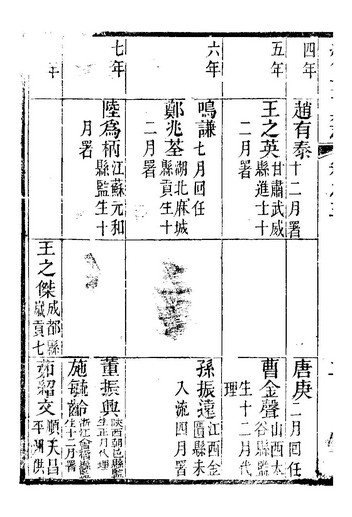 四年
趙有泰十二月署
唐庚二月回任
五年
王之英甘肅武威縣進士十二月署
曹金聲山西太谷縣監生十二月代理
六年
鳴謙七月回任
鄭兆荃湖北麻城縣貢生十二月署
孫振邅江西金匱縣未入流四月署
七年
陸爲柄江蘇元和縣監生十月署
董振興陝西朝邑縣監生正月代理
施毓齡浙江會稽縣監生十二月署
年
王之傑成都縣歲貢七
茹紹文順天昌平州供